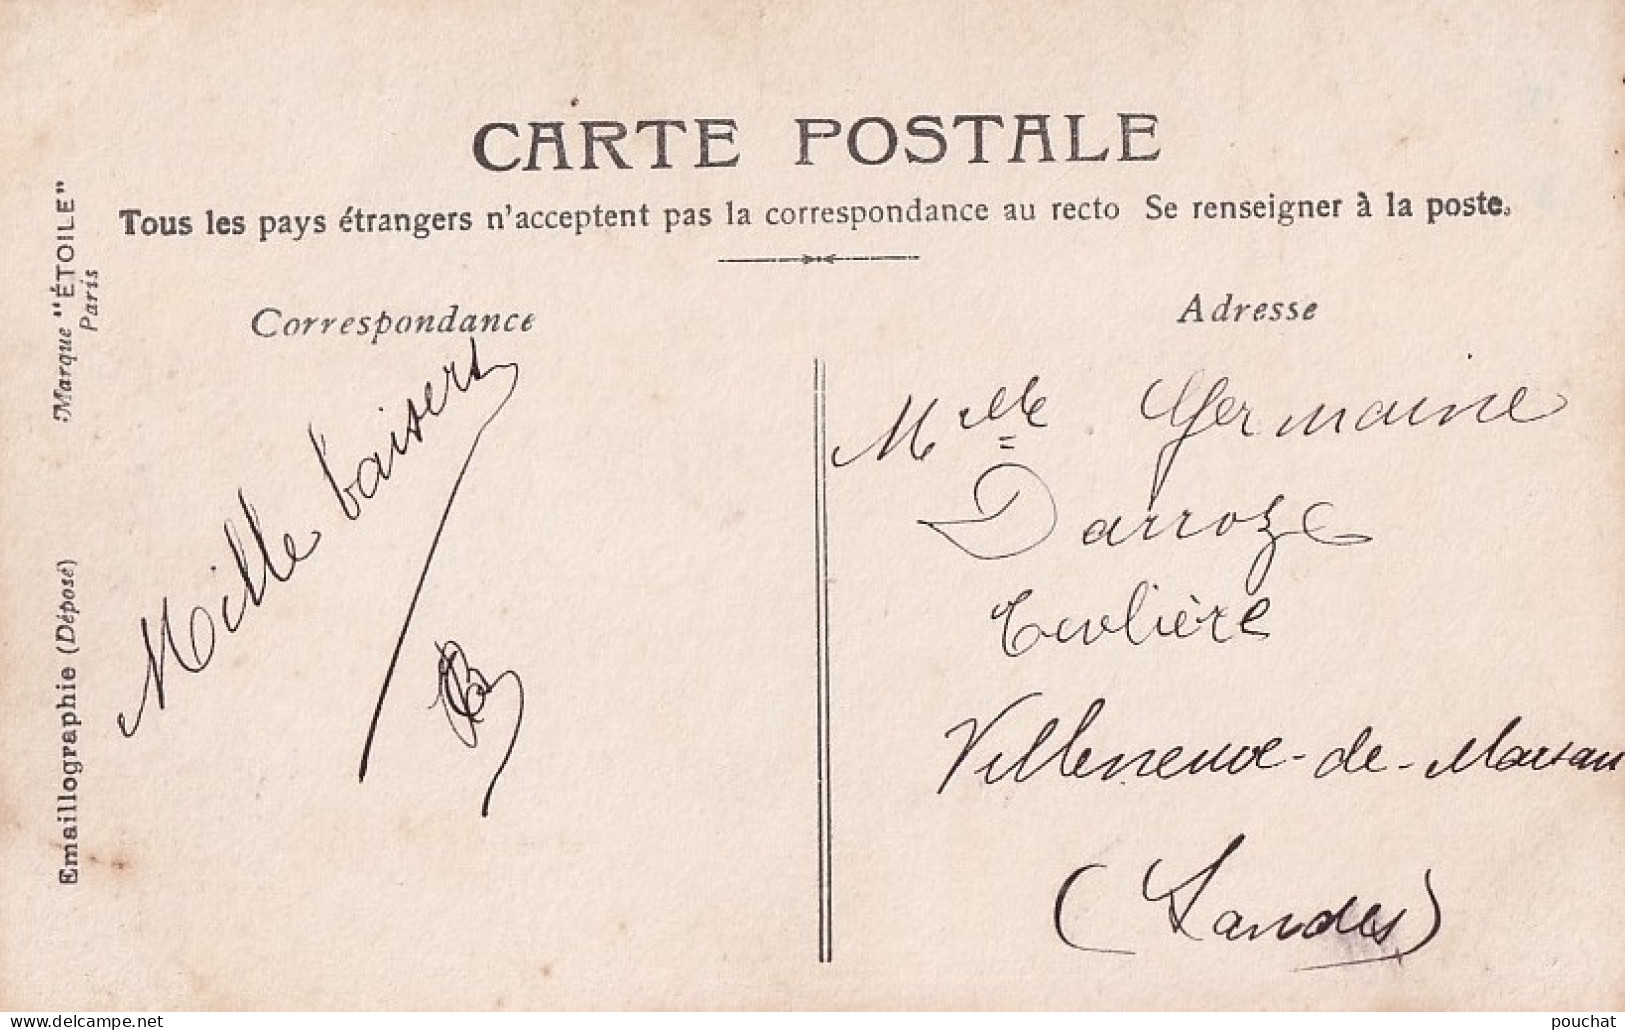 CARTE POSTALE
Tous les pays étrangers n'acceptent pas la correspondance au recto Se renseigner à la poste.
Marque "ÉTOILE"
Paris
Emaillographie (Déposé)
Correspondance
Mille baisers
Adresse
Melle Germaine
Darroze
Villeneuve-de-Marsan
(Landes)
www.delcampe.net
pouchat